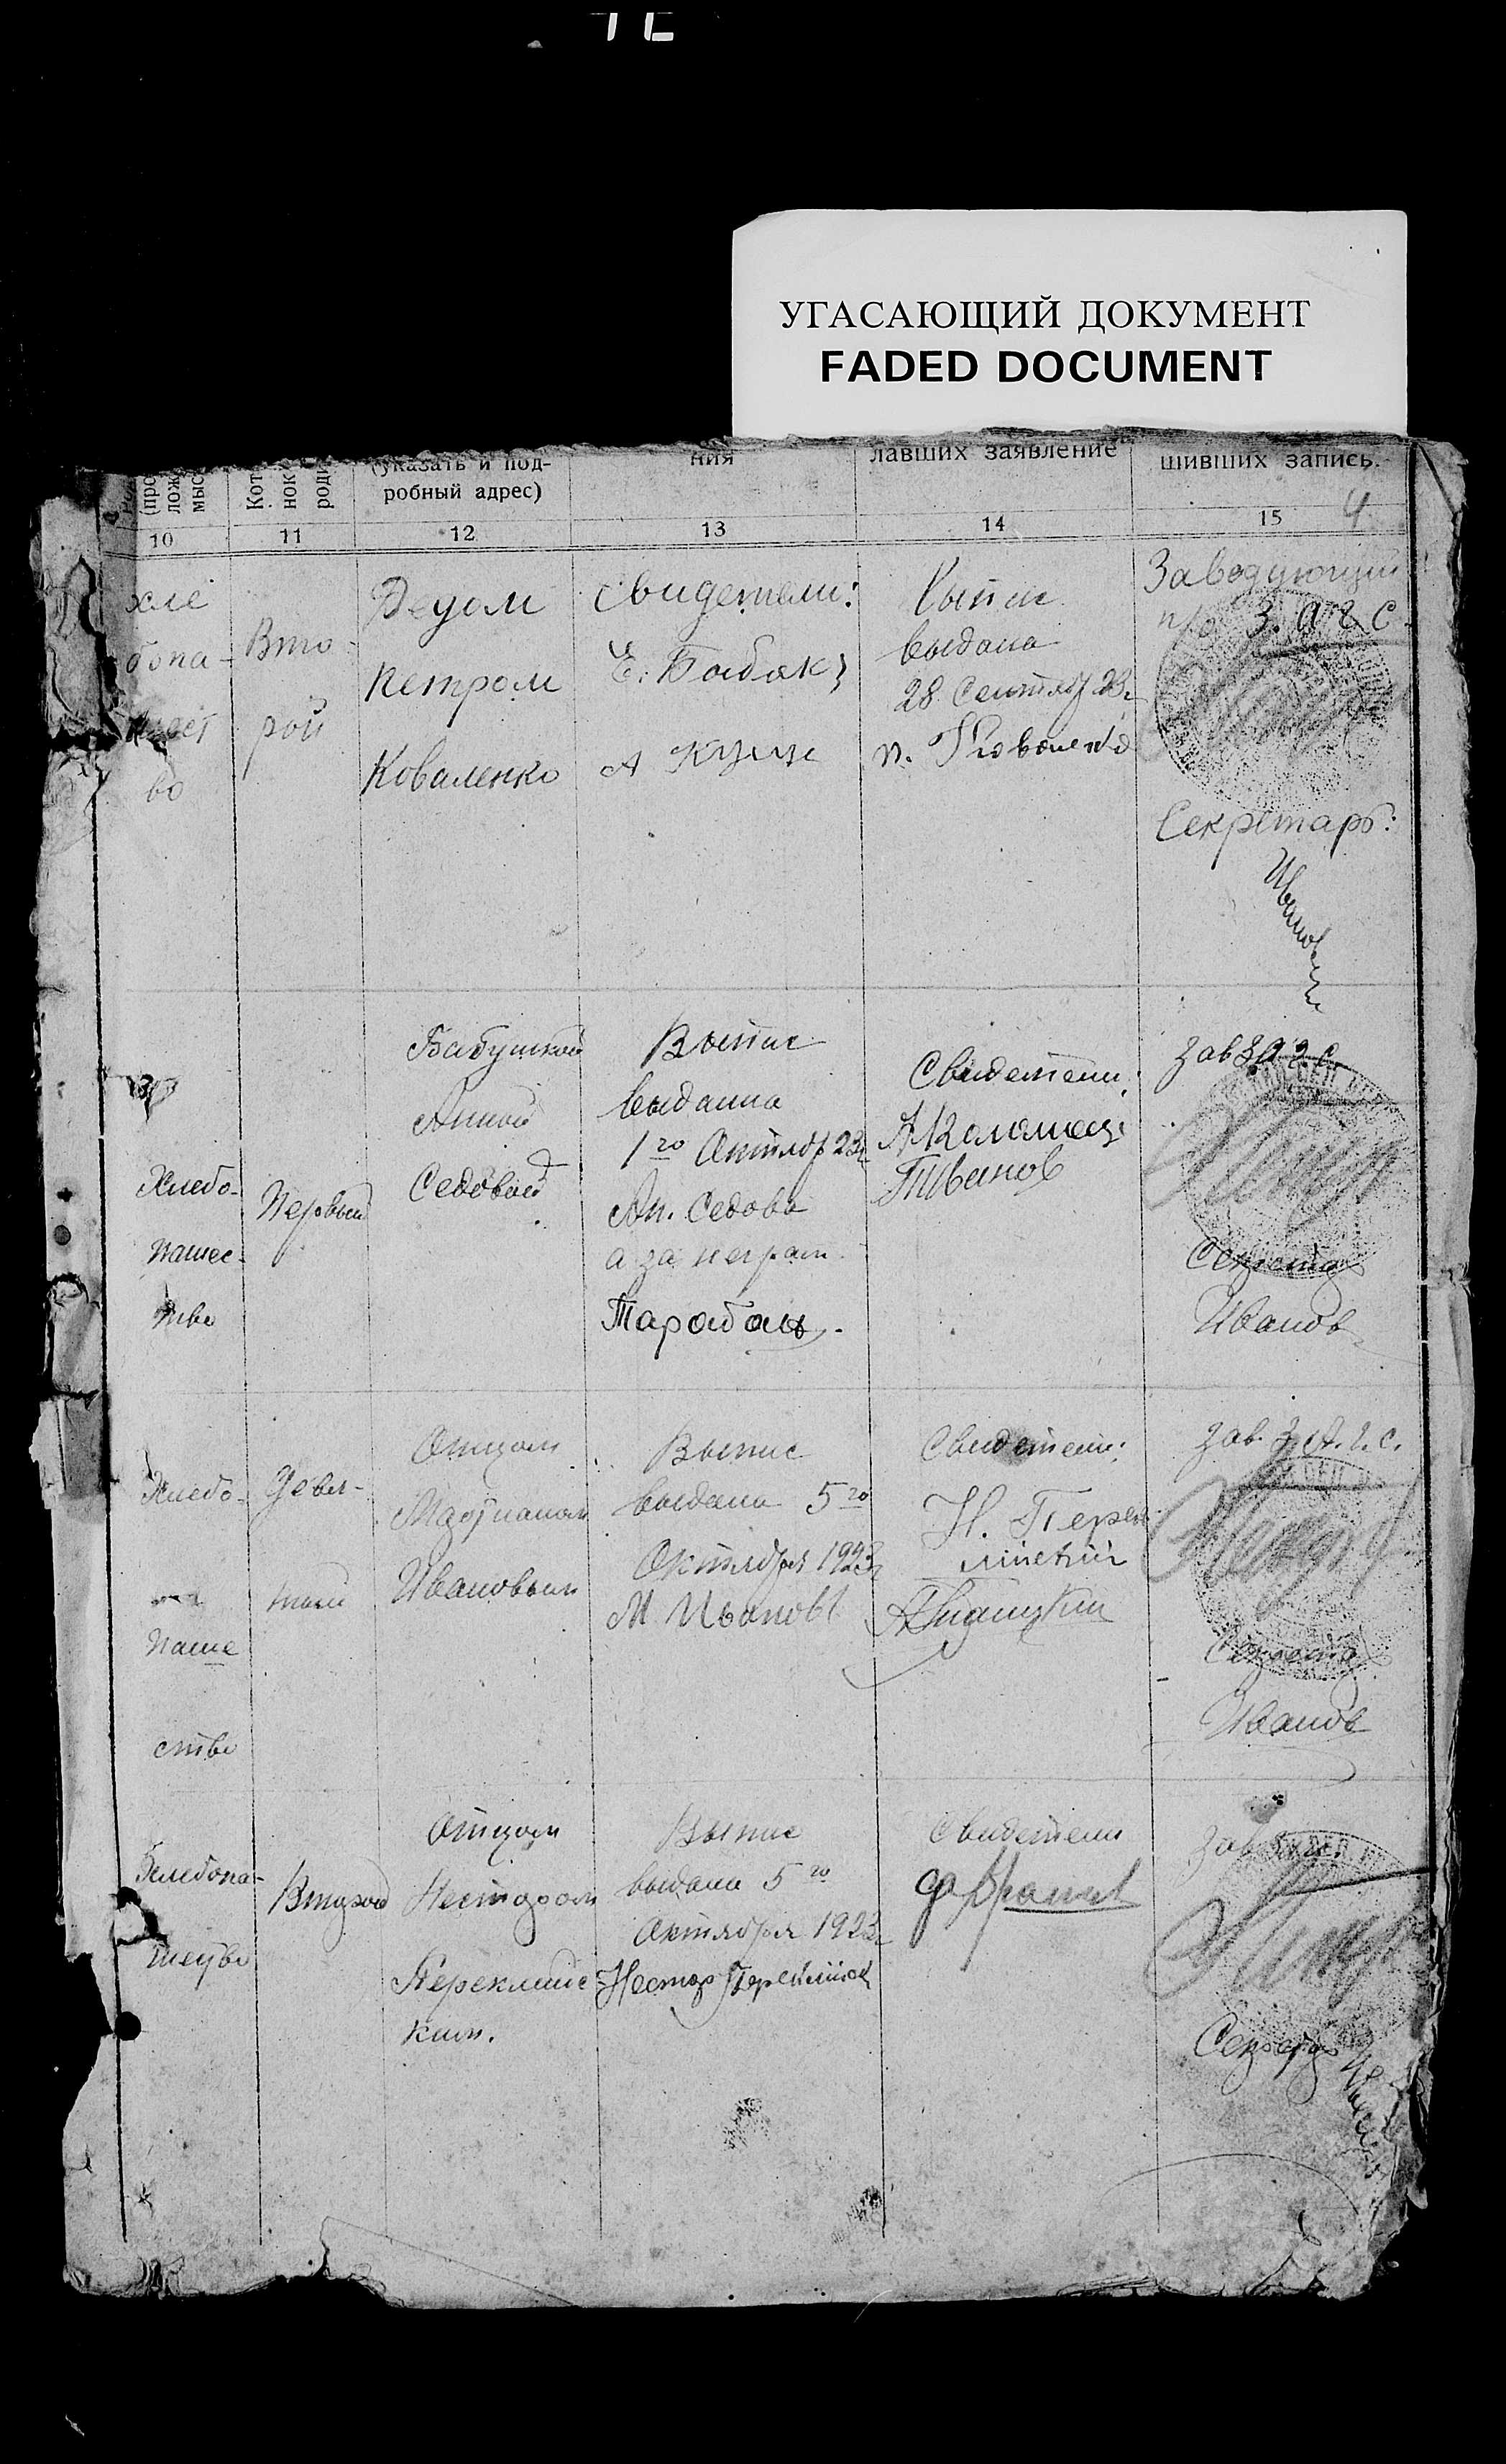 УГАСАЮЩИЙ ДОКУМЕНТ
FADED DOCUMENT
(про
лож
мыс
Кот
нок
роди
(указать и под-
робный адрес)
ния
лавших заявление
шивших запись.
4
10
11
12
13
14
15
хле
бопа-
во
Вто-
рой
Дедом
Петром
Коваленко
Свидетели:
Е. Бабак
А
Выпис
выдана
28 Сентябр 23г
п. Коваленко
Заведующий
п/о З.а.г.с.
Секретарь:
Иванов
Хлебо-
пашес-
тво
Первый
Бабушкой
Анной
Седовой
Выпис
выданна
1го Октябр 23г
Ан. Седова
а за неграм.
Тарабан
Свидетели:
А Коломеец
Т Иванов
Зав З.а.г.с.
Секретар
Иванов
Хлебо-
паше
ство
Девя-
тый
Отцом
Ивановым
Выпис
выдана 5го
Октября 1923г
М Иванов
Свидетели:
Н. Перек
линский
Зав. З.А.г.с.
Секретар
Иванов
Хлебопа-
Второй
Отцом
Нестором
Переклинс
ким.
Выпис
выдана 5го
Октября 1923г
Нестор Переклинск
Свидетели
Зав З.а.г.с.
Секретар